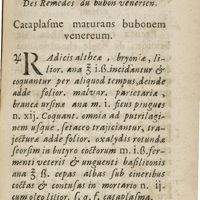 Des Remedes du bubon venerien.
Cataplasme maturans bubonem
venereum.
℞ Radicis altheæ, bryoniæ, li-
lior. ana ℥ i.ß. incidantur &
coquantur per aliquod tempus, deinde
adde folior. malvar. parietaria,
branca ursina ana m. i. ficus pingues
n. xij. Coquant. omnia ad putrilagi-
nem usque, setaceo trajiciantur, tra-
jecturæ adde folior. oxalydis rotundæ
seorsim in butyro coctorum m. i.ß. fer-
menti veteris & unguenti basiliconis
ana ℥ ß. cepas albas sub cineribus
coctas & contusas in mortario n. ij.
cum oleo lilior. s. q. f. cataplasma.